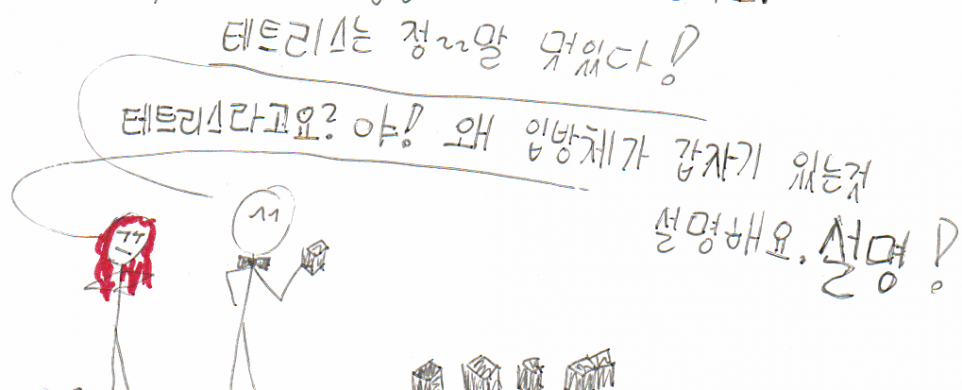 테트리스는 정~~말 멋있다!
테트리스라고요? 야! 왜 입방체가 갑자기 있는것
설명해요. 설명!